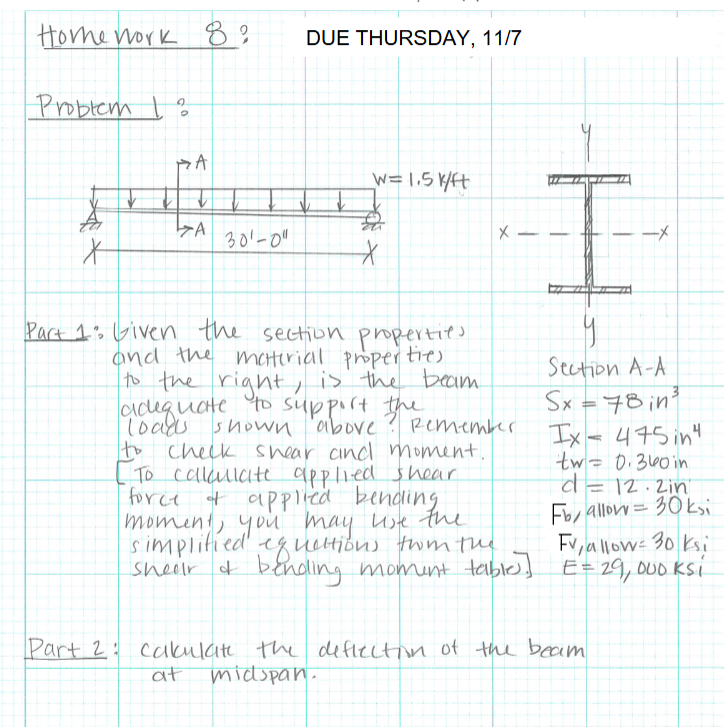 Homework 8:
DUE THURSDAY, 11/7
Problem 1:
A
W= 1.5 k/ft
A
30'-0"
y
x
x
y
Part 1: Given the section properties
and the material properties
to the right, is the beam
adequate to support the
loads shown above? Remember
to check shear and moment.
[To calculate applied shear
force & applied bending
moment, you may use the
simplified equations from the
shear & bending moment tables]
Section A-A
Sx = 78 in³
Ix = 475 in⁴
tw = 0.360 in
d = 12.2 in
Fb, allow = 30 ksi
Fv, allow = 30 ksi
E = 29,000 ksi
Part 2: calculate the deflection of the beam
at midspan.